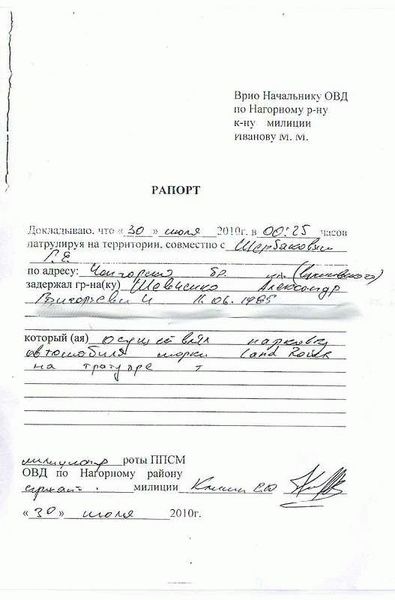 Врио Начальнику ОВД
по Нагорному р-ну
к-ну милиции
Иванову М. М.
РАПОРТ
Докладываю, что « 30 » июля 2010г. в 00:25 часов
патрулируя на территории, совместно с Щербаковым
Г.Е.
по адресу: Чонгарский бр. ул.
задержал гр-на(ку) Шевченко Александр
11.06.1985
который (ая) осуществлял парковку
автомобиля марки Land Rover
на тротуаре
милиционер роты ППСМ
ОВД по Нагорному району
сержант милиции
« 30 » июля 2010г.